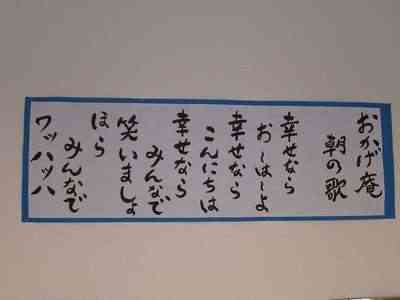 おかげ庵
朝の歌
幸せなら
お〜は〜よ
幸せなら
こんにちは
幸せなら
みんなで
笑いましょ
ほら
みんなで
ワッハッハ